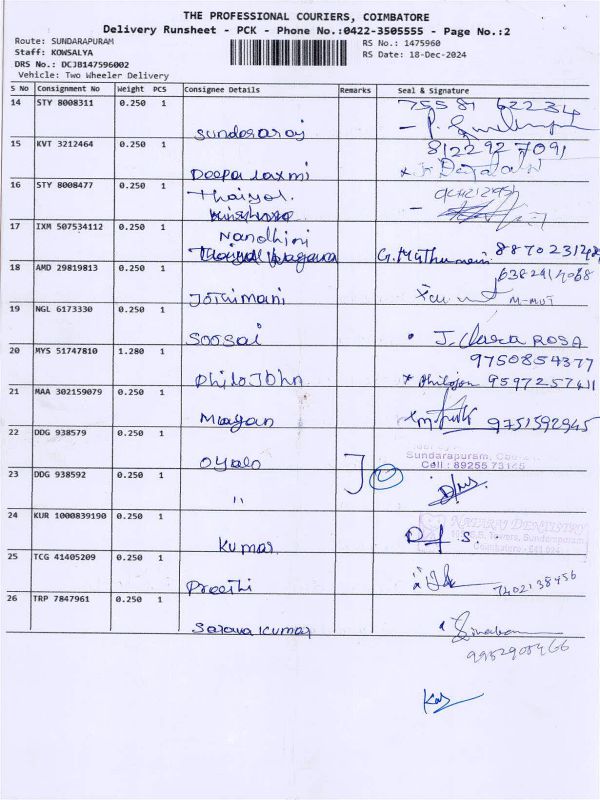 THE PROFESSIONAL COURIERS, COIMBATORE
Delivery Runsheet - PCK - Phone No.:0422-3505555 - Page No.:2
Route: SUNDARAPURAM RS No.: 1475960
Staff: KOWSALYA RS Date: 18-Dec-2024
DRS No.: DCJB147596002
Vehicle: Two Wheeler Delivery
S No Consignment No Weight PCS Consignee Details Remarks Seal & Signature
14 STY 8008311 0.250 1 75581 62234
Sundararaj
15 KVT 3212464 0.250 1 8122927091
Deepa Laxmi
16 STY 8008477 0.250 1
Thaiyal.
17 IXM 507534112 0.250 1
Nandhini
G.Muthumani
18 AMD 29819813 0.250 1 6382914068
Jothimani M-MUT
19 NGL 6173330 0.250 1
Soosai J. Clara ROSA
20 MYS 51747810 1.280 1 9750854377
Philo John Philojon 9597257411
21 MAA 302159079 0.250 1
9751592945
22 DDG 938579 0.250 1
Sundarapuram,
Cell : 89255 73145
23 DDG 938592 0.250 1
"
24 KUR 1000839190 0.250 1 NATARAJ DENTISTRY
Kumar
25 TCG 41405209 0.250 1
Preethi 7402138456
26 TRP 7847961 0.250 1
Sarava Kumar